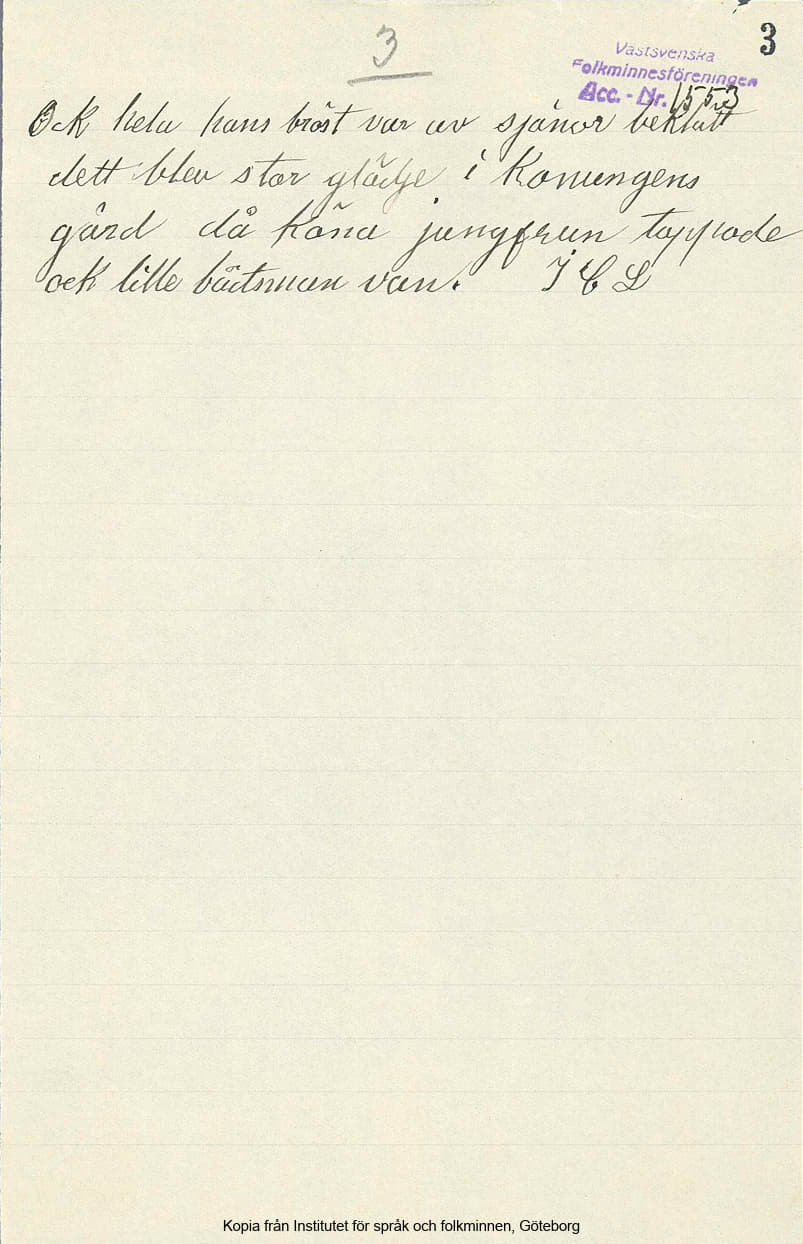 3
3
Västsvenska
Folkminnesföreningen
Acc. - Nr. 1553
Ock hela hans bröst var av sjänor beklätt
dett blev stor glädje i Konungens
gård då köna jungfrun tappade
ock lille båtsman van. I C L
Kopia från Institutet för språk och folkminnen, Göteborg